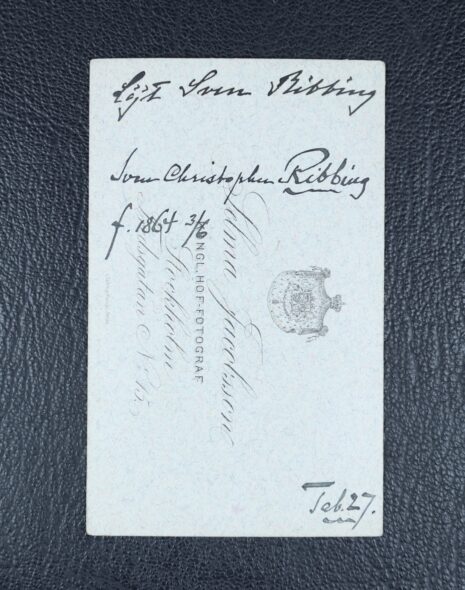 Löjt Sven Ribbing
Sven Christopher Ribbing
f. 1864 3/6
Selma Jacobsson
KNGL. HOF-FOTOGRAF
Stockholm
Tab. 27.